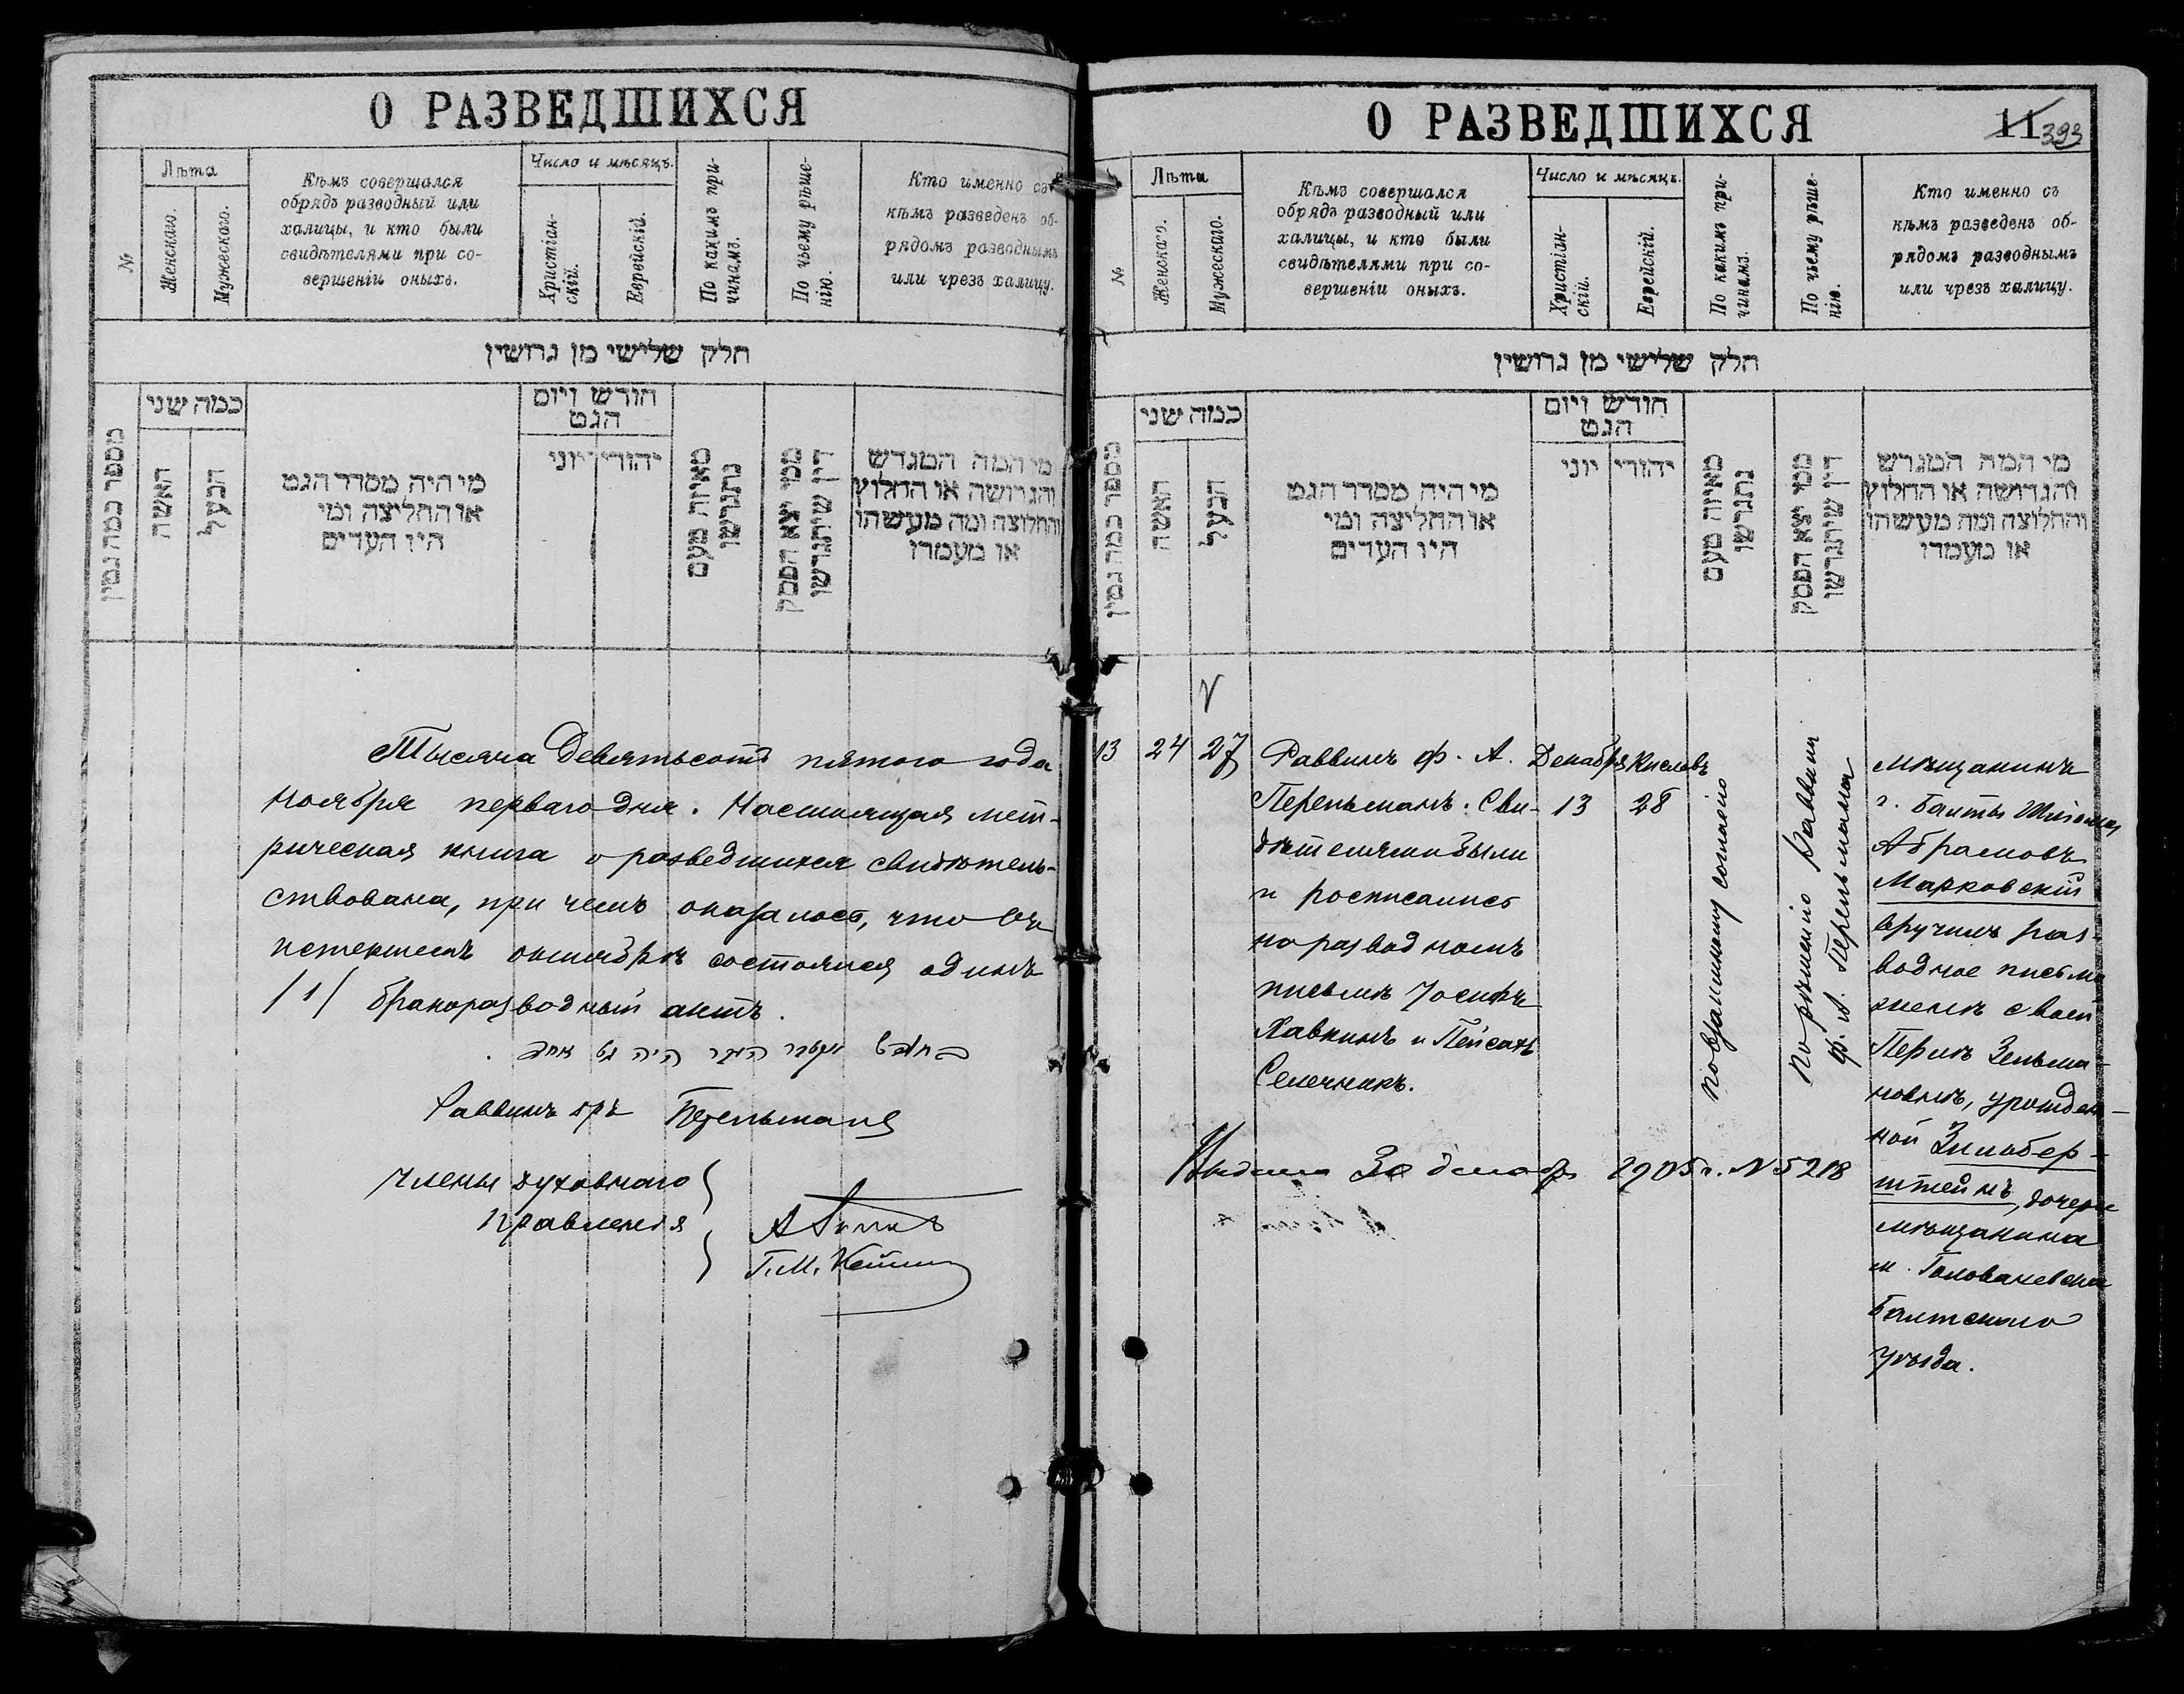 О РАЗВЕДШИХСЯ
№
Лѣта
Женскаго.
Мужескаго.
Кѣмъ совершался
обрядъ разводный или
халицы, и кто были
свидѣтелями при со-
вершеніи оныхъ.
Число и мѣсяцъ.
Христіан-
скій.
Еврейскій.
По какимъ при-
чинамъ.
По чьему рѣше-
нію.
Кто именно съ
кѣмъ разведенъ об-
рядомъ разводнымъ
или чрезъ халицу.
חלק שלישי מן גרושין
מספר כמה גטין
כמה שני
האשה
הבעל
מי היה מסדר הגט
או החליצה ומי
היו העדים
חודש ויום
הגט
יהודי יוני
מאיזה טעם
נתגרשו
ממי יצא הפסק
דין שיתגרשו
מי המה המגרש
והגרושה או החלוץ
והחלוצה ומה מעשהו
או מעמדו
Тысяча девятьсотъ пятого года
ноября перваго дня. Настоящая мет-
рическая книга о разведшихся свидѣтель-
ствована, при чемъ оказалось, что въ
истекшемъ октябрѣ состоялся одинъ
/1/ бракоразводный актъ.
היה גט אחד
Раввинъ Перельманъ
Члены духовнаго
правленія
О РАЗВЕДШИХСЯ
11 393
№
Лѣта
Женскаго.
Мужескаго.
Кѣмъ совершался
обрядъ разводный или
халицы, и кто были
свидѣтелями при со-
вершеніи оныхъ.
Число и мѣсяцъ.
Христіан-
скій.
Еврейскій.
По какимъ при-
чинамъ.
По чьему рѣше-
нію.
Кто именно съ
кѣмъ разведенъ об-
рядомъ разводнымъ
или чрезъ халицу.
חלק שלישי מן גרושין
מספר כמה גטין
כמה שני
האשה
הבעל
מי היה מסדר הגט
או החליצה ומי
היו העדים
חודש ויום
הגט
יהודי יוני
מאיזה טעם
נתגרשו
ממי יצא הפסק
דין שיתגרשו
מי המה המגרש
והגרושה או החלוץ
והחלוצה ומה מעשהו
או מעמדו
13 24 27
Раввинъ Ф. А.
Перельманъ. Сви-
дѣтелями были
и росписались
на разводномъ
письмѣ Іосифъ
Хавкинъ и Пейсахъ
Селечникъ.
Декабря
13
Кислевъ
28
По взаимному согласію
По рѣшенію Раввина
Ф. А. Перельмана
Мѣщанинъ
г. Балты
Абрамовъ
Марковскій
вручилъ раз-
водное письмо
женѣ своей
Перлѣ Зельма-
новнѣ, урожден-
ной Зильбер-
штейнъ, дочери
мѣщанина
м. Голованевска
Балтскаго
уѣзда.
1905 г. № 5218